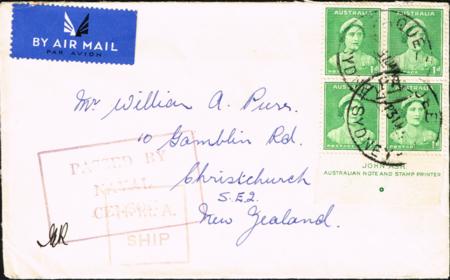 BY AIR MAIL
PAR AVION
AUSTRALIA
AUSTRALIA
1d
1d
AUSTRALIA
AUSTRALIA
1d
1d
SYDNEY
JOHN ASH
AUSTRALIAN NOTE AND STAMP PRINTER
Mr William A.
10 Gamblin Rd.
Christchurch
S.E.2.
New Zealand.
PASSED BY
NAVAL
SHIP